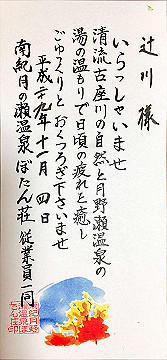 辻川様
いらっしゃいませ
清流古座川の自然と月野瀬温泉の
湯の温もりで日頃の疲れを癒し
ごゆっくりとおくつろぎ下さいませ
平成二十九年十一月 四日
南紀月の瀬温泉ぼたん荘 従業員一同